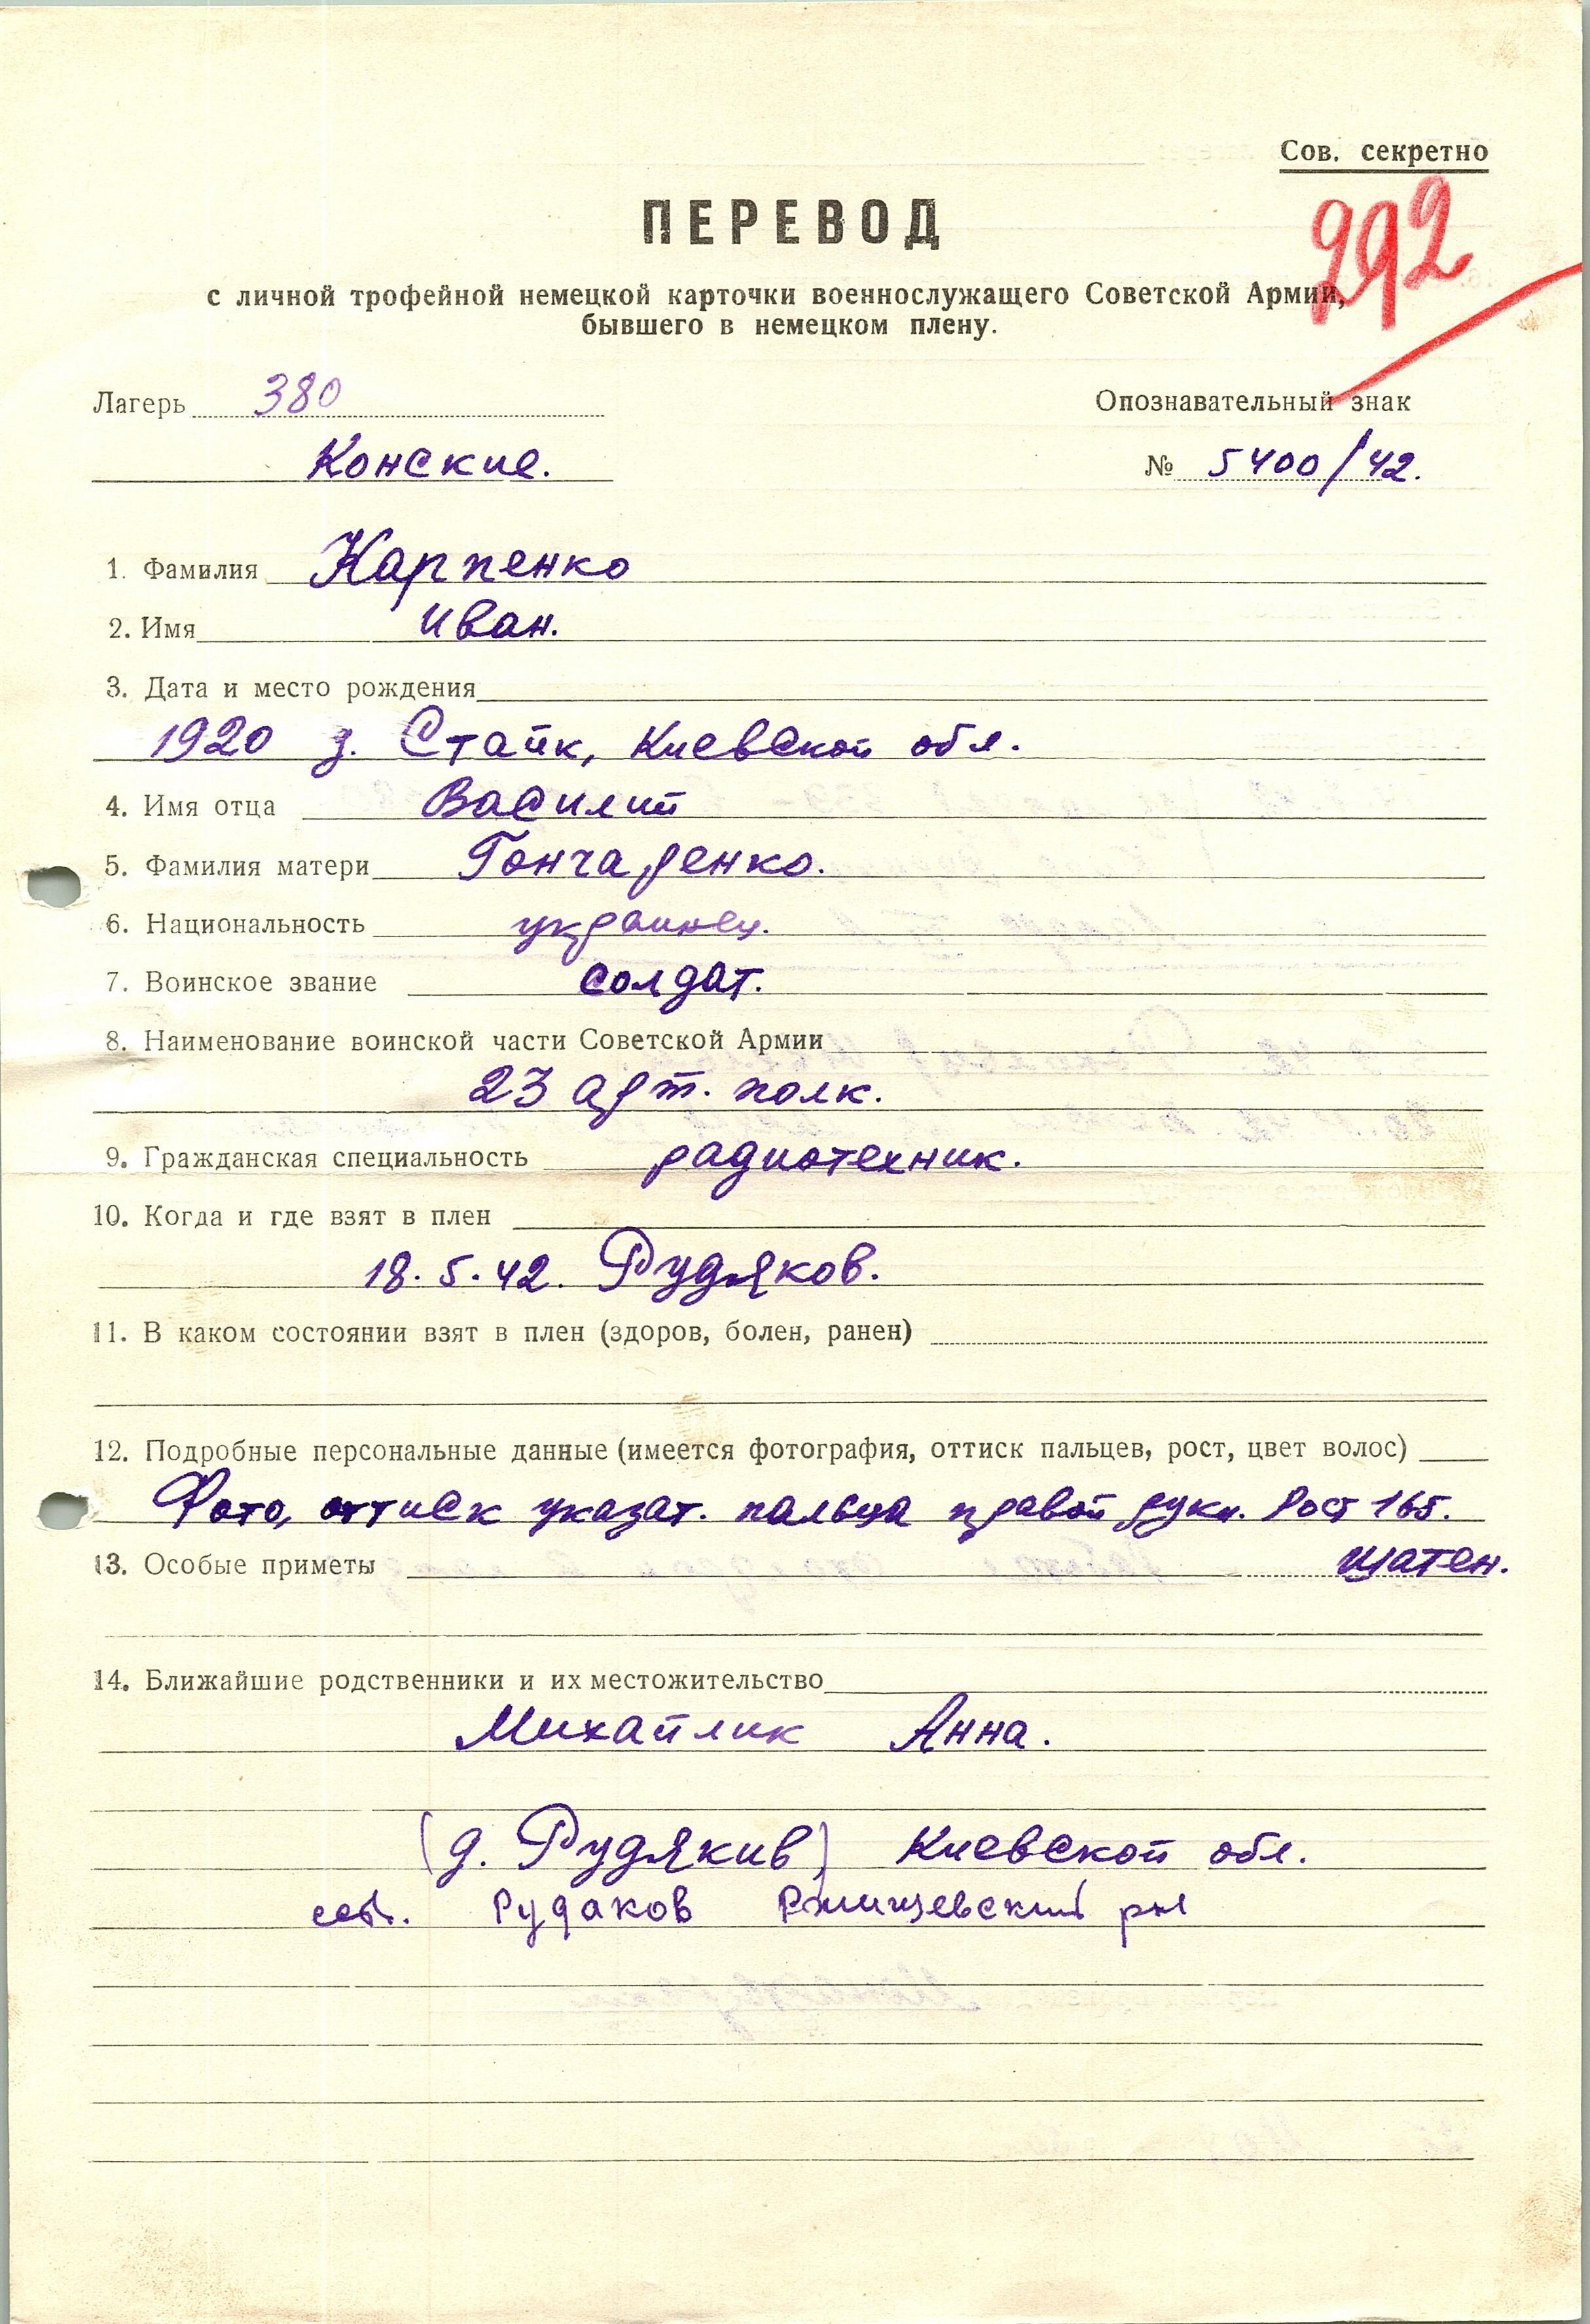 Сов. секретно
292
ПЕРЕВОД
с личной трофейной немецкой карточки военнослужащего Советской Армии,
бывшего в немецком плену.
Лагерь 380
Опознавательный знак
Конские.
№ 5400/42.
1. Фамилия Карпенко
2. Имя Иван.
3. Дата и место рождения
1920 д. Стайк, Киевской обл.
4. Имя отца Василий
5. Фамилия матери Гончаренко.
6. Национальность украинец.
7. Воинское звание солдат.
8. Наименование воинской части Советской Армии
23 арт. полк.
9. Гражданская специальность радиотехник.
10. Когда и где взят в плен
18.5.42. Рудяков.
11. В каком состоянии взят в плен (здоров, болен, ранен)
12. Подробные персональные данные (имеется фотография, оттиск пальцев, рост, цвет волос)
Фото, оттиск указат. пальца правой руки. Рост 165.
шатен.
13. Особые приметы
14. Ближайшие родственники и их местожительство
Михайлик Анна.
(д. Рудякив) Киевской обл.
Рудаков Ржищевский рн